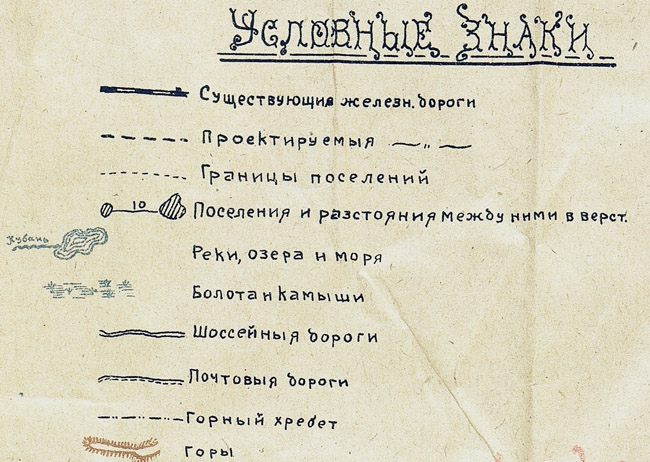 Условные знаки
Существующия железн. дороги
Проектируемыя — „ —
Границы поселений
10 Поселения и разстояния между ними в верст.
Кубань
Реки, озера и моря
Болота и камыши
Шоссейныя дороги
Почтовыя дороги
Горный хребет
Горы